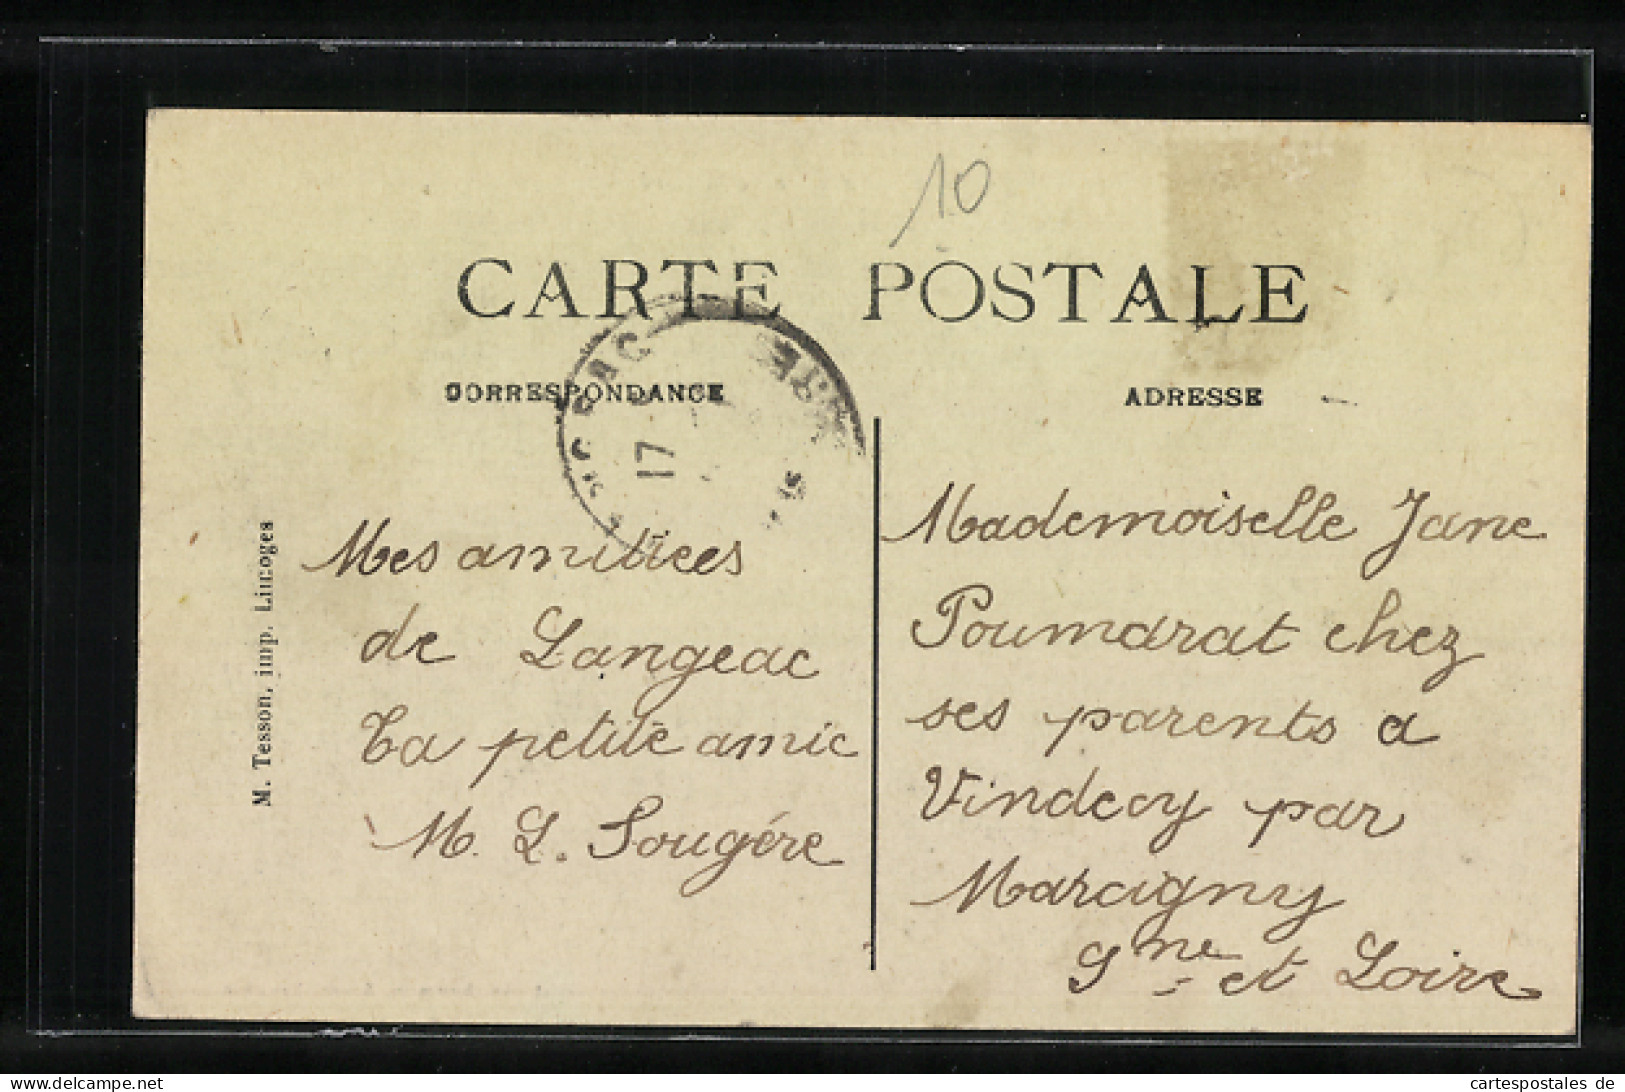 10
CARTE POSTALE
CORRESPONDANCE
ADRESSE
17
M. Tesson, imp. Limoges
Mes amitiées
de Langeac
Ta petite amie
M. L. Sougére
Mademoiselle Jane
Poumarat chez
ses parents a
Vindecy par
Marcigny
Sne et Loire
cartespostales de
www.delcampe.net